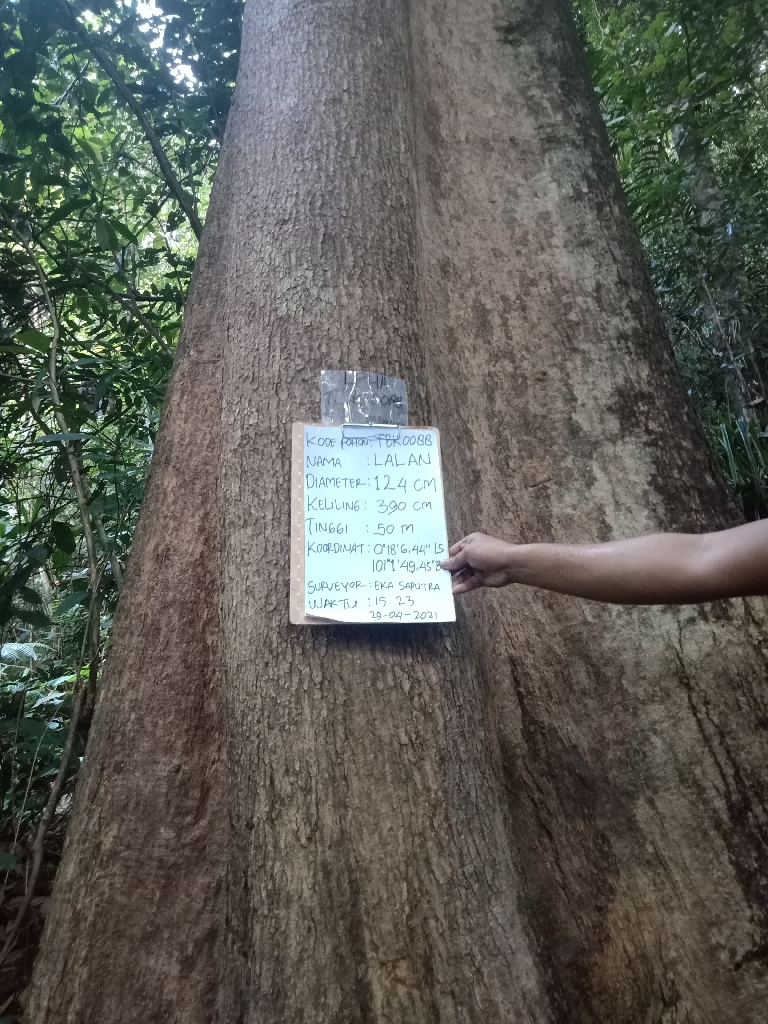 KODE POHON: TBK0088
NAMA : LALAN
DIAMETER : 124 CM
KELILING : 390 CM
TINGGI : 50 M
KOORDINAT : 0°18'6,44" LS
101°1'49,45"B
SURVEYOR : EKA SAPUTRA
WAKTU : 15 23
29-04-2021